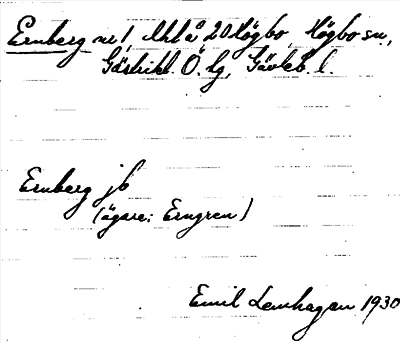 Ernberg nr 1, Mtl å 20 Högbo, Högbo sn,
Gästrikl. Ö. hg, Gävleb. l.
Ernberg jb
(ägare: Erngren)
Emil Lenhagen 1930